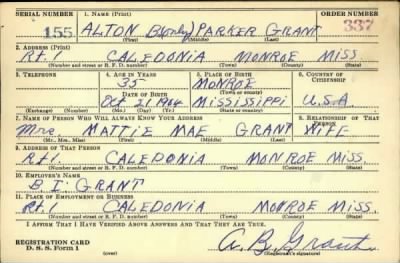 SERIAL NUMBER 1. NAME (Print) ORDER NUMBER
155 ALTON B(only) PARKER GRANT 337
(First) (Middle) (Last)
2. ADDRESS (Print)
Rt. 1. CALEDONIA MONROE MISS.
(Number and street or R. F. D. number) (Town) (County) (State)
3. TELEPHONE 4. AGE IN YEARS 5. PLACE OF BIRTH 6. COUNTRY OF CITIZENSHIP
35 MONROE
DATE OF BIRTH (Town or county)
Oct 21 1904 MISSISSIPPI U.S.A
(Exchange) (Number) (Mo.) (Day) (Yr.) (State or country)
7. NAME OF PERSON WHO WILL ALWAYS KNOW YOUR ADDRESS 8. RELATIONSHIP OF THAT PERSON
Mrs. MATTIE MAE GRANT WIFE
(Mr., Mrs., Miss) (First) (Middle) (Last)
9. ADDRESS OF THAT PERSON
Rt 1. CALEDONIA MONROE MISS.
(Number and street or R. F. D. number) (Town) (County) (State)
10. EMPLOYER'S NAME
B. I. GRANT
11. PLACE OF EMPLOYMENT OR BUSINESS
Rt. 1 CALEDONIA MONROE MISS.
(Number and street or R. F. D. number) (Town) (County) (State)
I AFFIRM THAT I HAVE VERIFIED ABOVE ANSWERS AND THAT THEY ARE TRUE.
REGISTRATION CARD
D. S. S. Form 1 (over) A. B. Grant
(Registrant's signature)